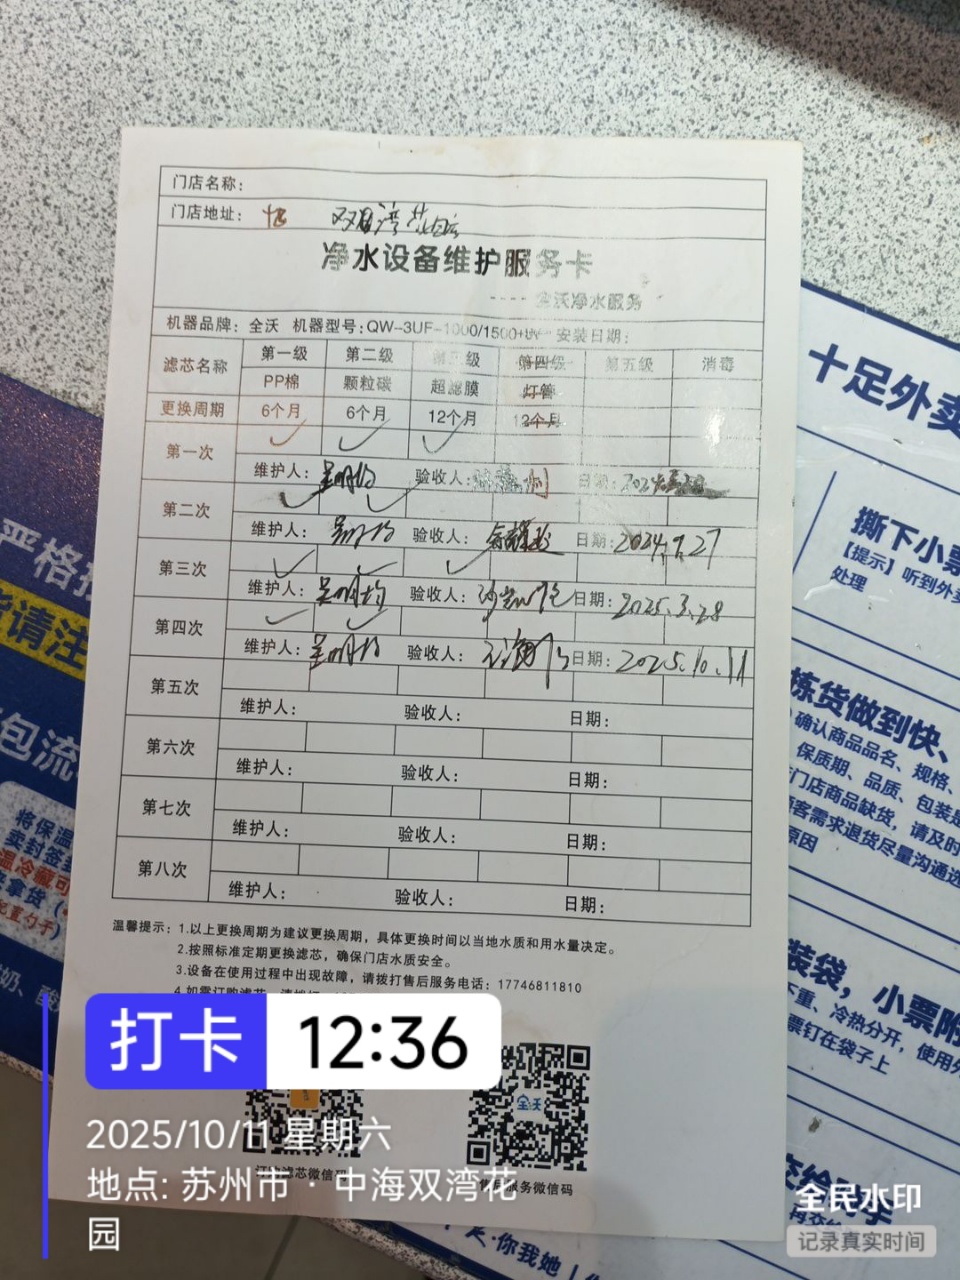 门店名称：
门店地址： 双湾花园
净水设备维护服务卡
----全沃净水服务
机器品牌：全沃 机器型号：QW-3UF-1000/1500 安装日期：
滤芯名称 第一级 第二级 第三级 第四级 第五级 消毒
PP棉 颗粒碳 超滤膜 灯管
更换周期 6个月 6个月 12个月 12个月
第一次 ✓ ✓ ✓
维护人： 验收人： 日期：
第二次 ✓ ✓
维护人： 验收人： 日期：2024.7.27
第三次 ✓ ✓ ✓
维护人： 验收人： 日期：2025.3.28
第四次 ✓ ✓
维护人： 验收人： 日期：2025.10.11
第五次
维护人： 验收人： 日期：
第六次
维护人： 验收人： 日期：
第七次
维护人： 验收人： 日期：
第八次
维护人： 验收人： 日期：
温馨提示：1.以上更换周期为建议更换周期，具体更换时间以当地水质和用水量决定。
2.按照标准定期更换滤芯，确保门店水质安全。
3.设备在使用过程中出现故障，请拨打售后服务电话：17746811810
全沃
滤芯微信码
售后服务微信码
打卡 12:36
2025/10/11 星期六
地点：苏州市·中海双湾花
园
全民水印
记录真实时间
严格
请注
包流
将保温
卖封签
温冷藏可
拿货
配置勺子
奶、酸
十足外卖
撕下小票
【提示】听到外卖
处理
拣货做到快、
确认商品品名、规格、
保质期、品质、包装是
门店商品缺货，请及时
顾客需求退货尽量沟通选
原因
装袋，小票附
不重、冷热分开，使用外
票钉在袋子上
你我她